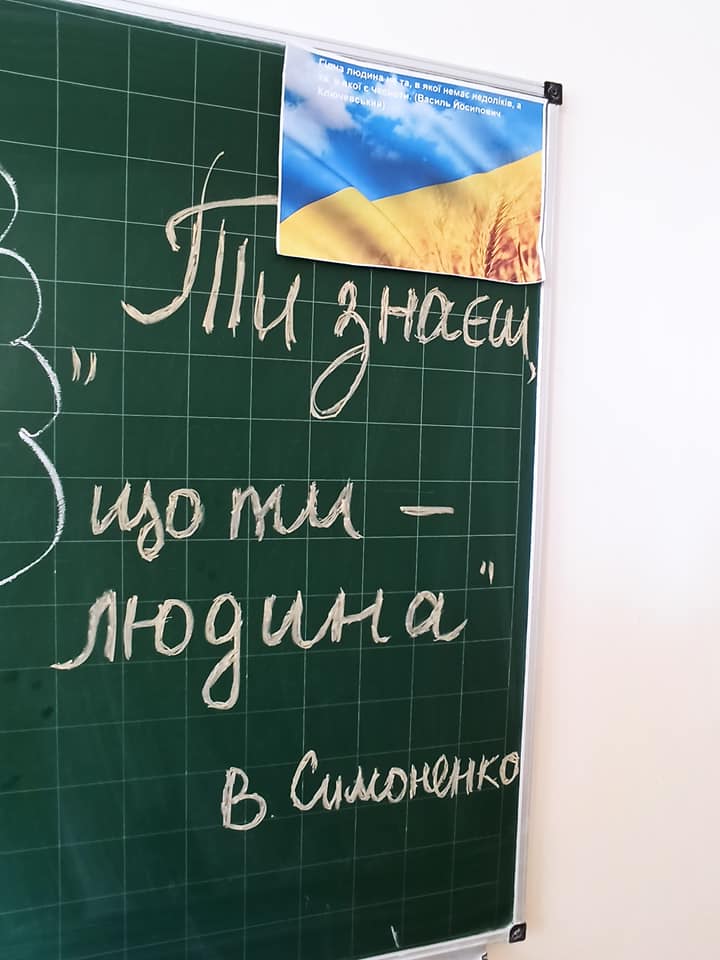 Гідна людина не та, в якої немає недоліків, а
та, в якої є чесноти. (Василь Йосипович
Ключевський)
Ти знаєш,
"що ти –
людина"
В. Симоненко